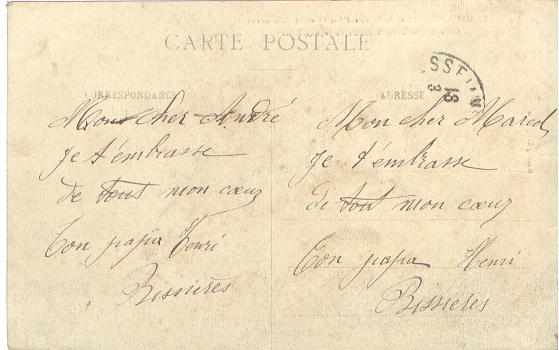 CARTE POSTALE
CORRESPONDANCE
Mon cher André
Je t'embrasse
de tout mon cœur
Ton papa Henri
Bissières
ADRESSE
18
3
Mon cher Marcel
Je t'embrasse
de tout mon cœur
Ton papa Henri
Bissieres